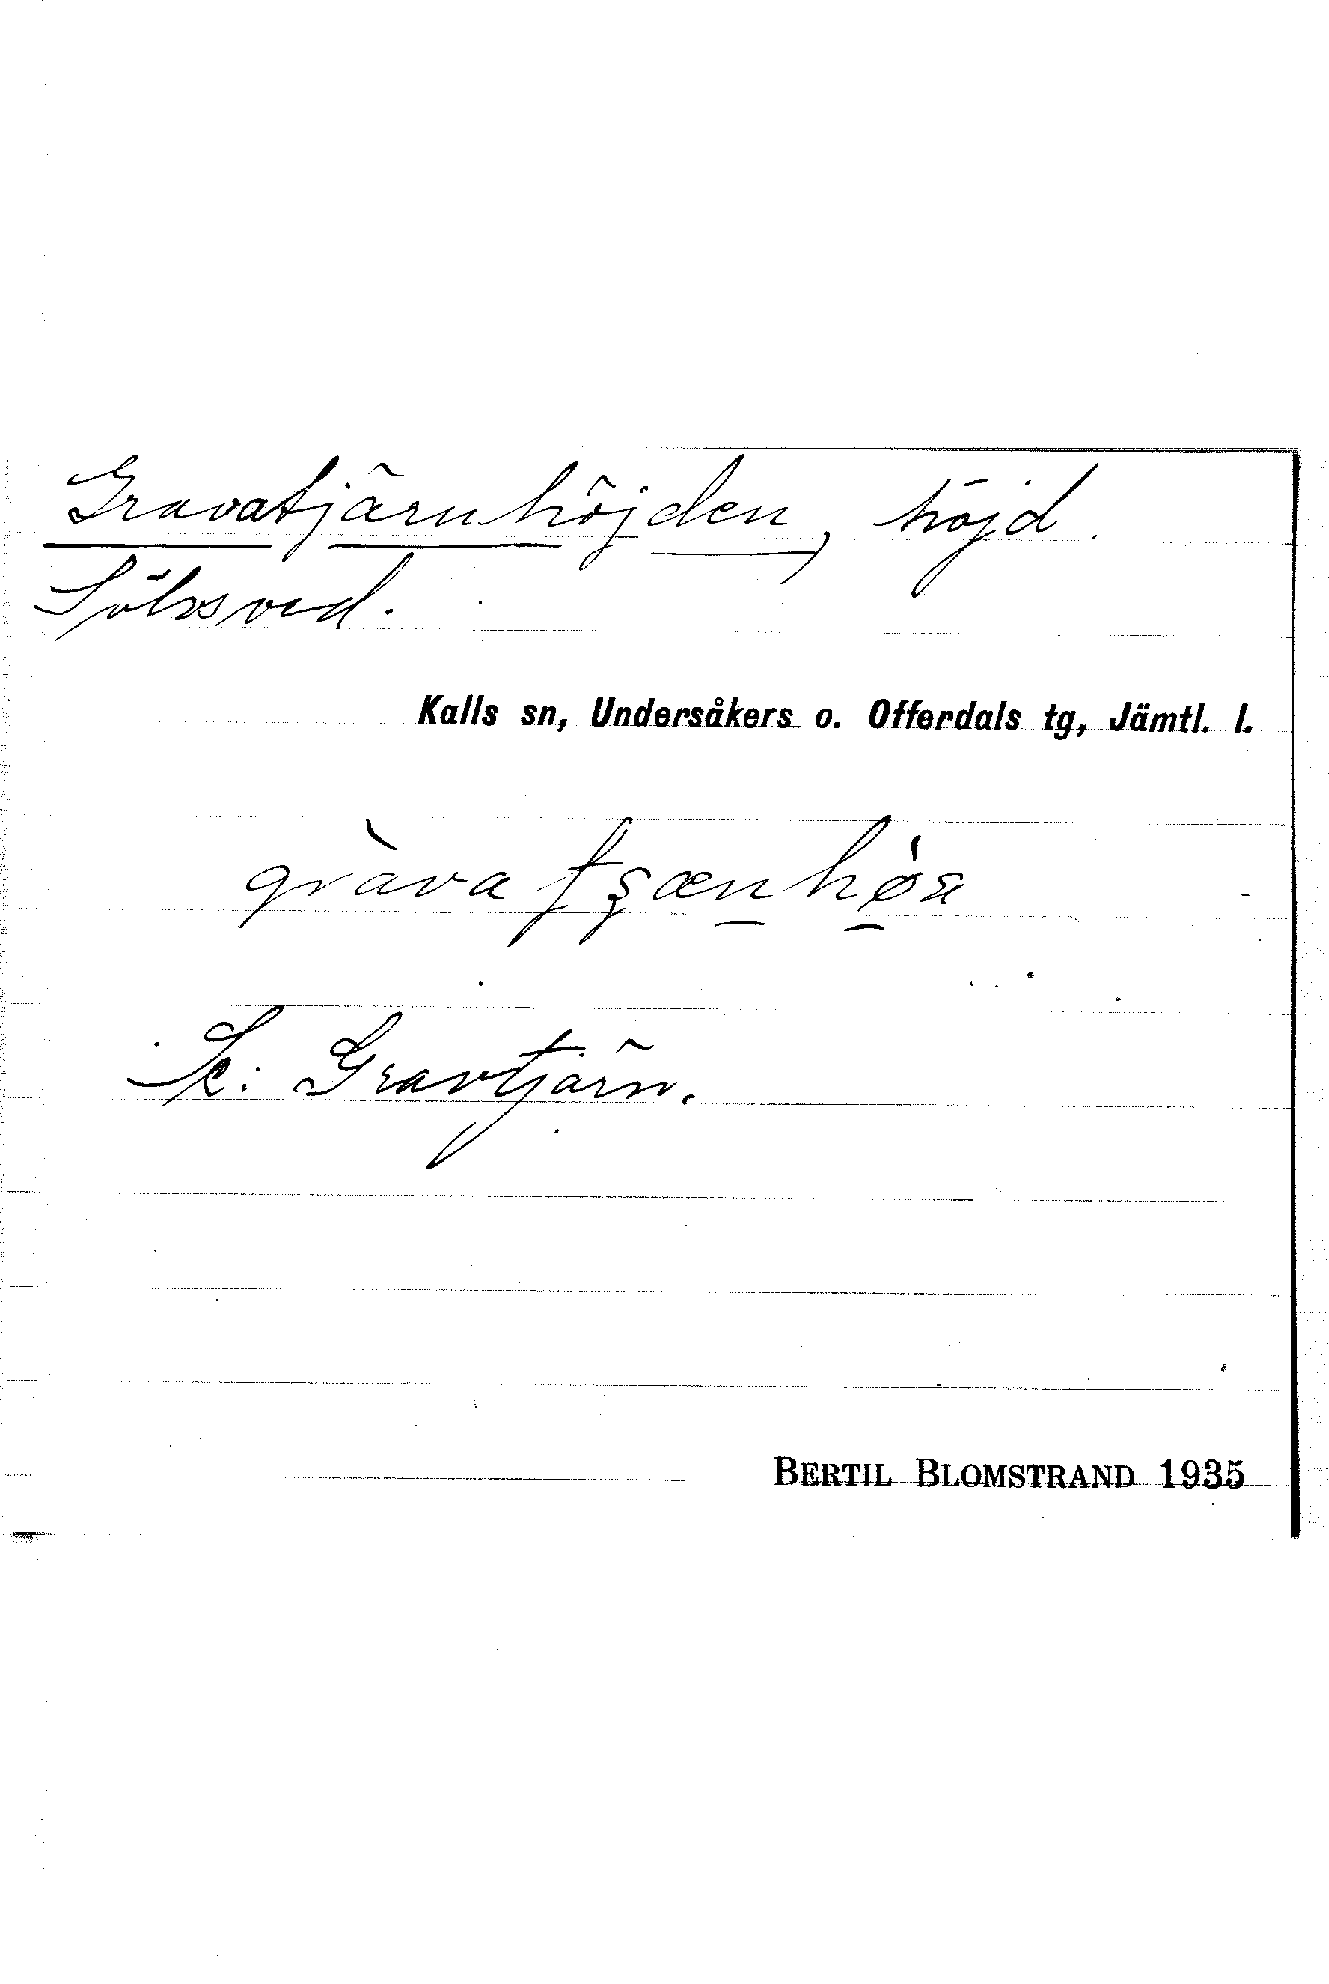 Gravatjärnhöjden, höjd.
Sölvsved.
Kalls sn, Undersåkers o. Offerdals tg, Jämtl. l.
gràva tʂænhøa
Se: Gravtjärn.
BERTIL BLOMSTRAND 1935